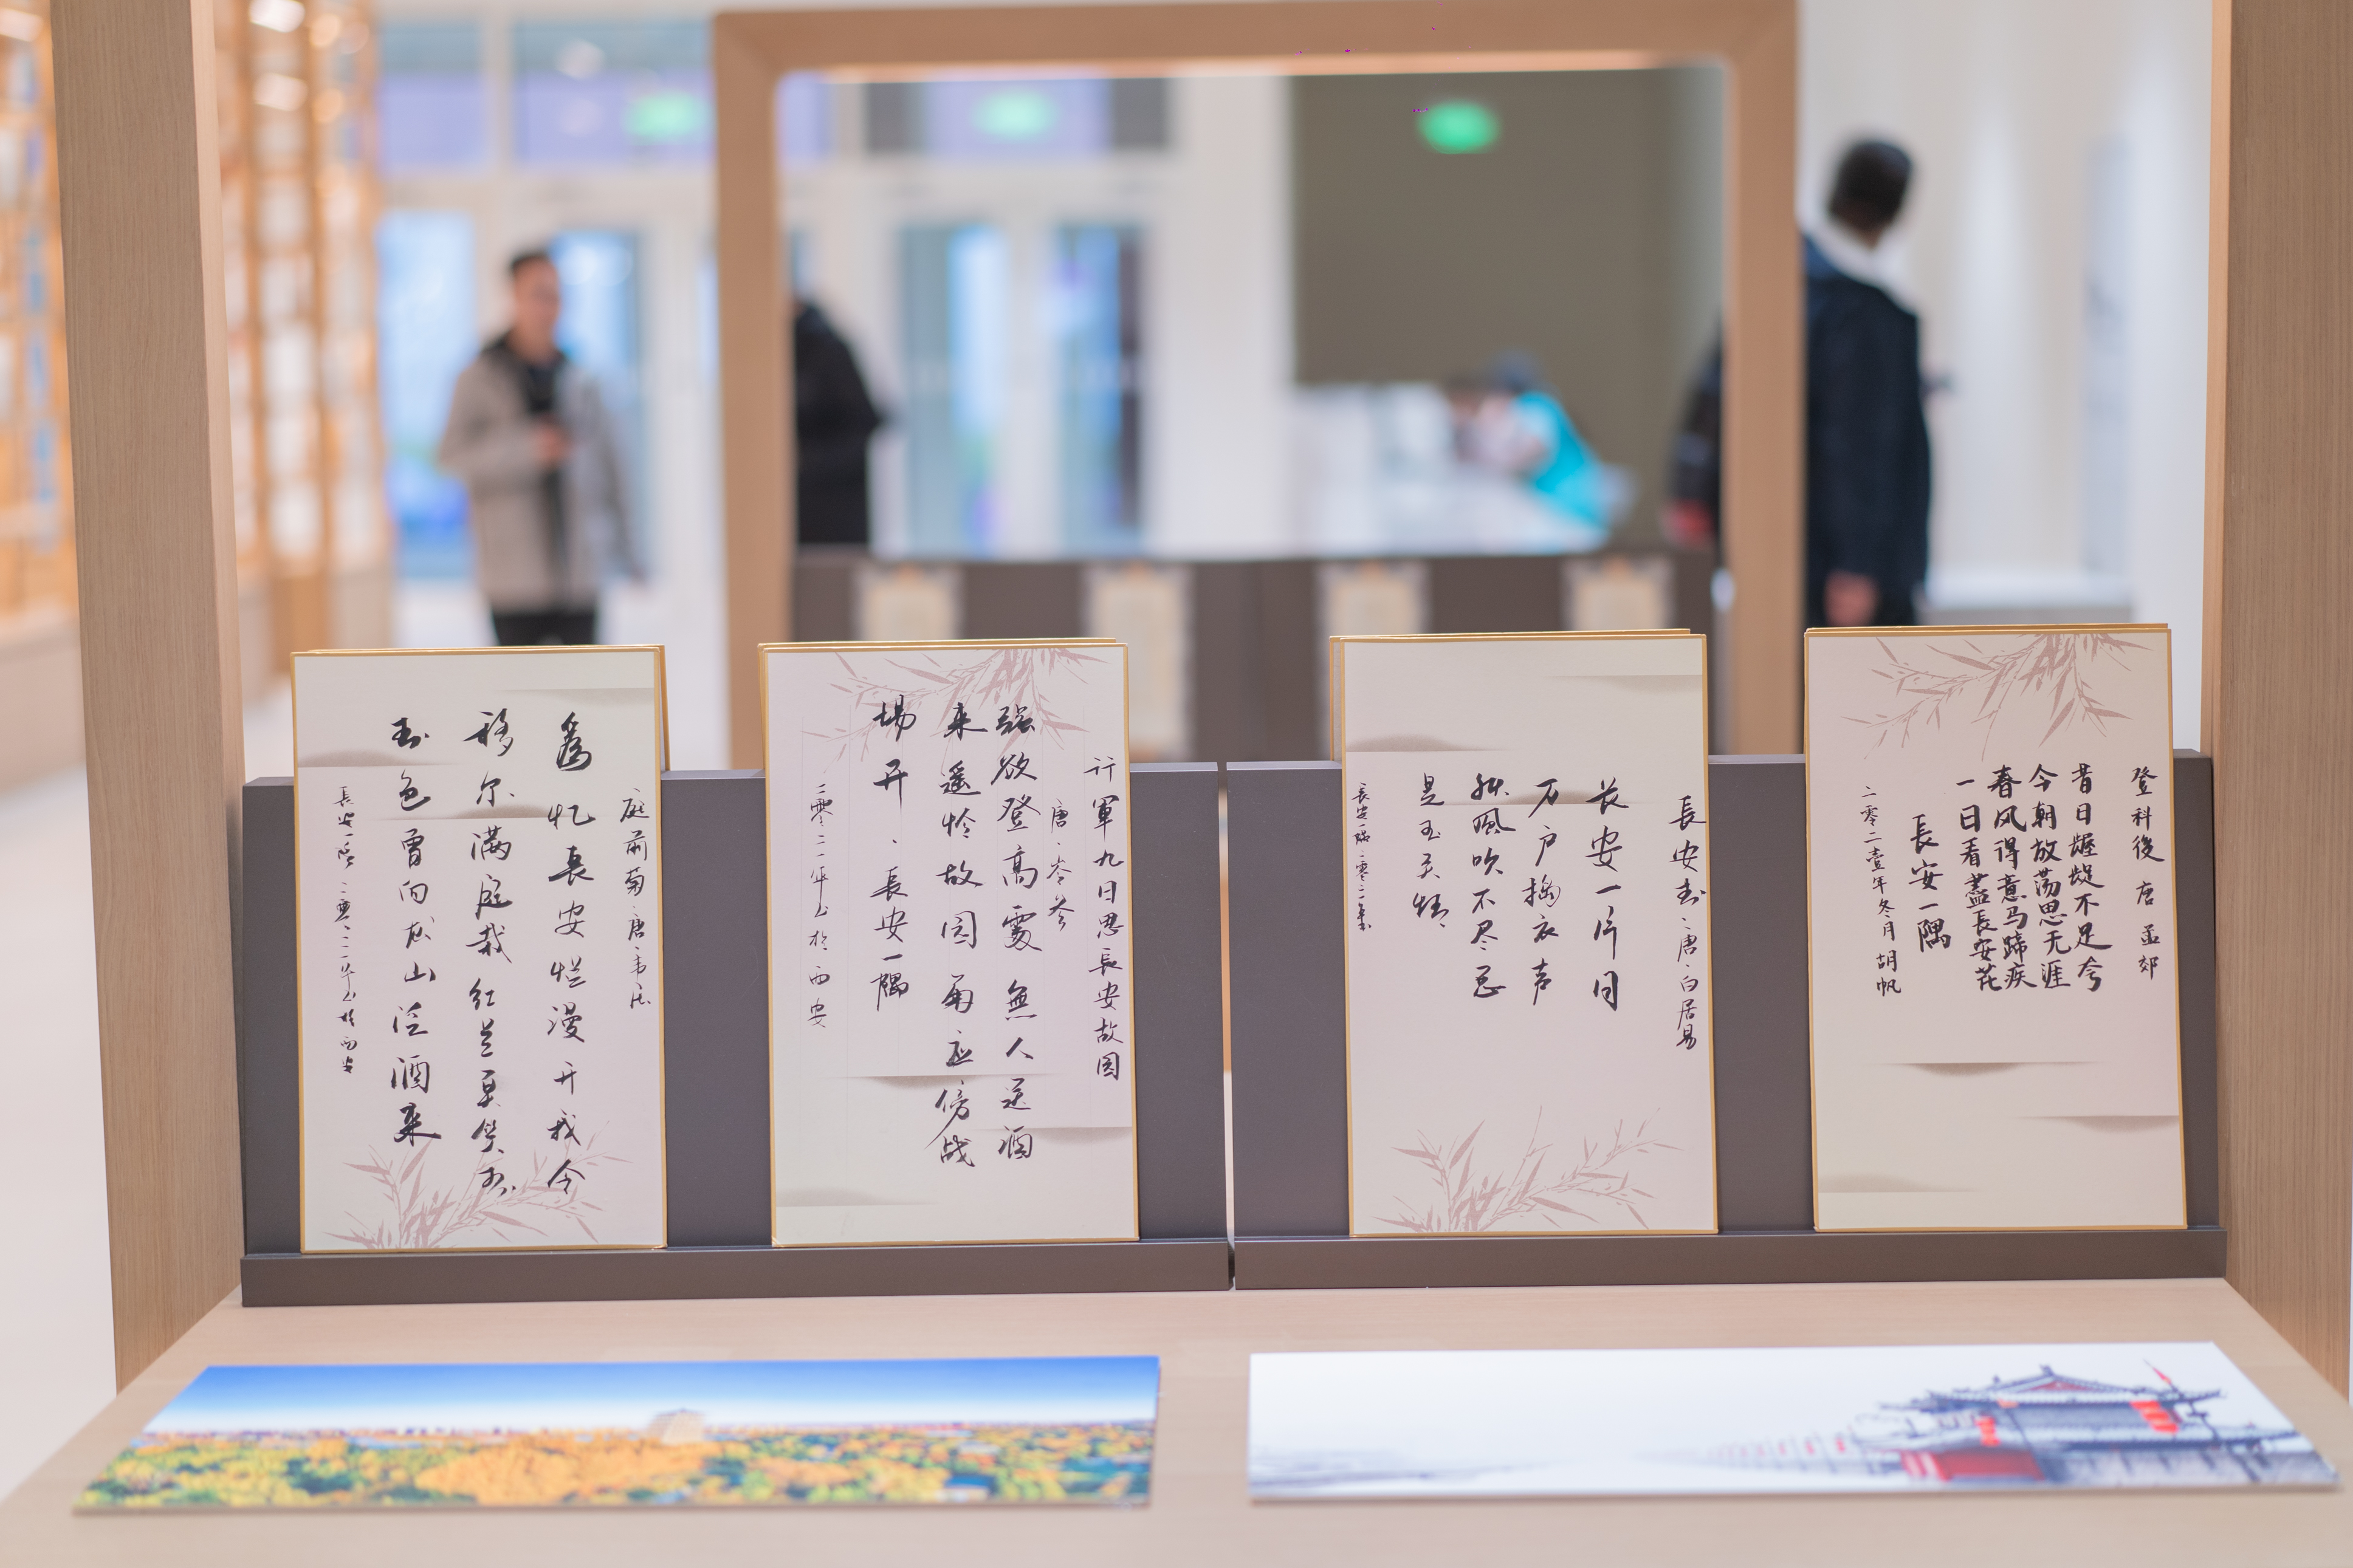 庭前菊·唐·韦庄
為忆長安烂漫开我今
移尔满庭栽红兰莫笑青
青色曾向龙山泛酒来
長安一隅 二零二一年书於西安
行軍九日思長安故园
唐·岑参
强欲登高處無人送酒
来遥怜故园菊应傍战
場开、長安一隅
二零二一年书於西安
長安书·唐·白居易
长安一片月
万户捣衣声
秋風吹不尽总
是玉关情
長安一隅
登科後 唐 孟郊
昔日龌龊不足夸
今朝放荡思无涯
春风得意马蹄疾
一日看盡長安花
長安一隅
二零二壹年冬月 胡帆